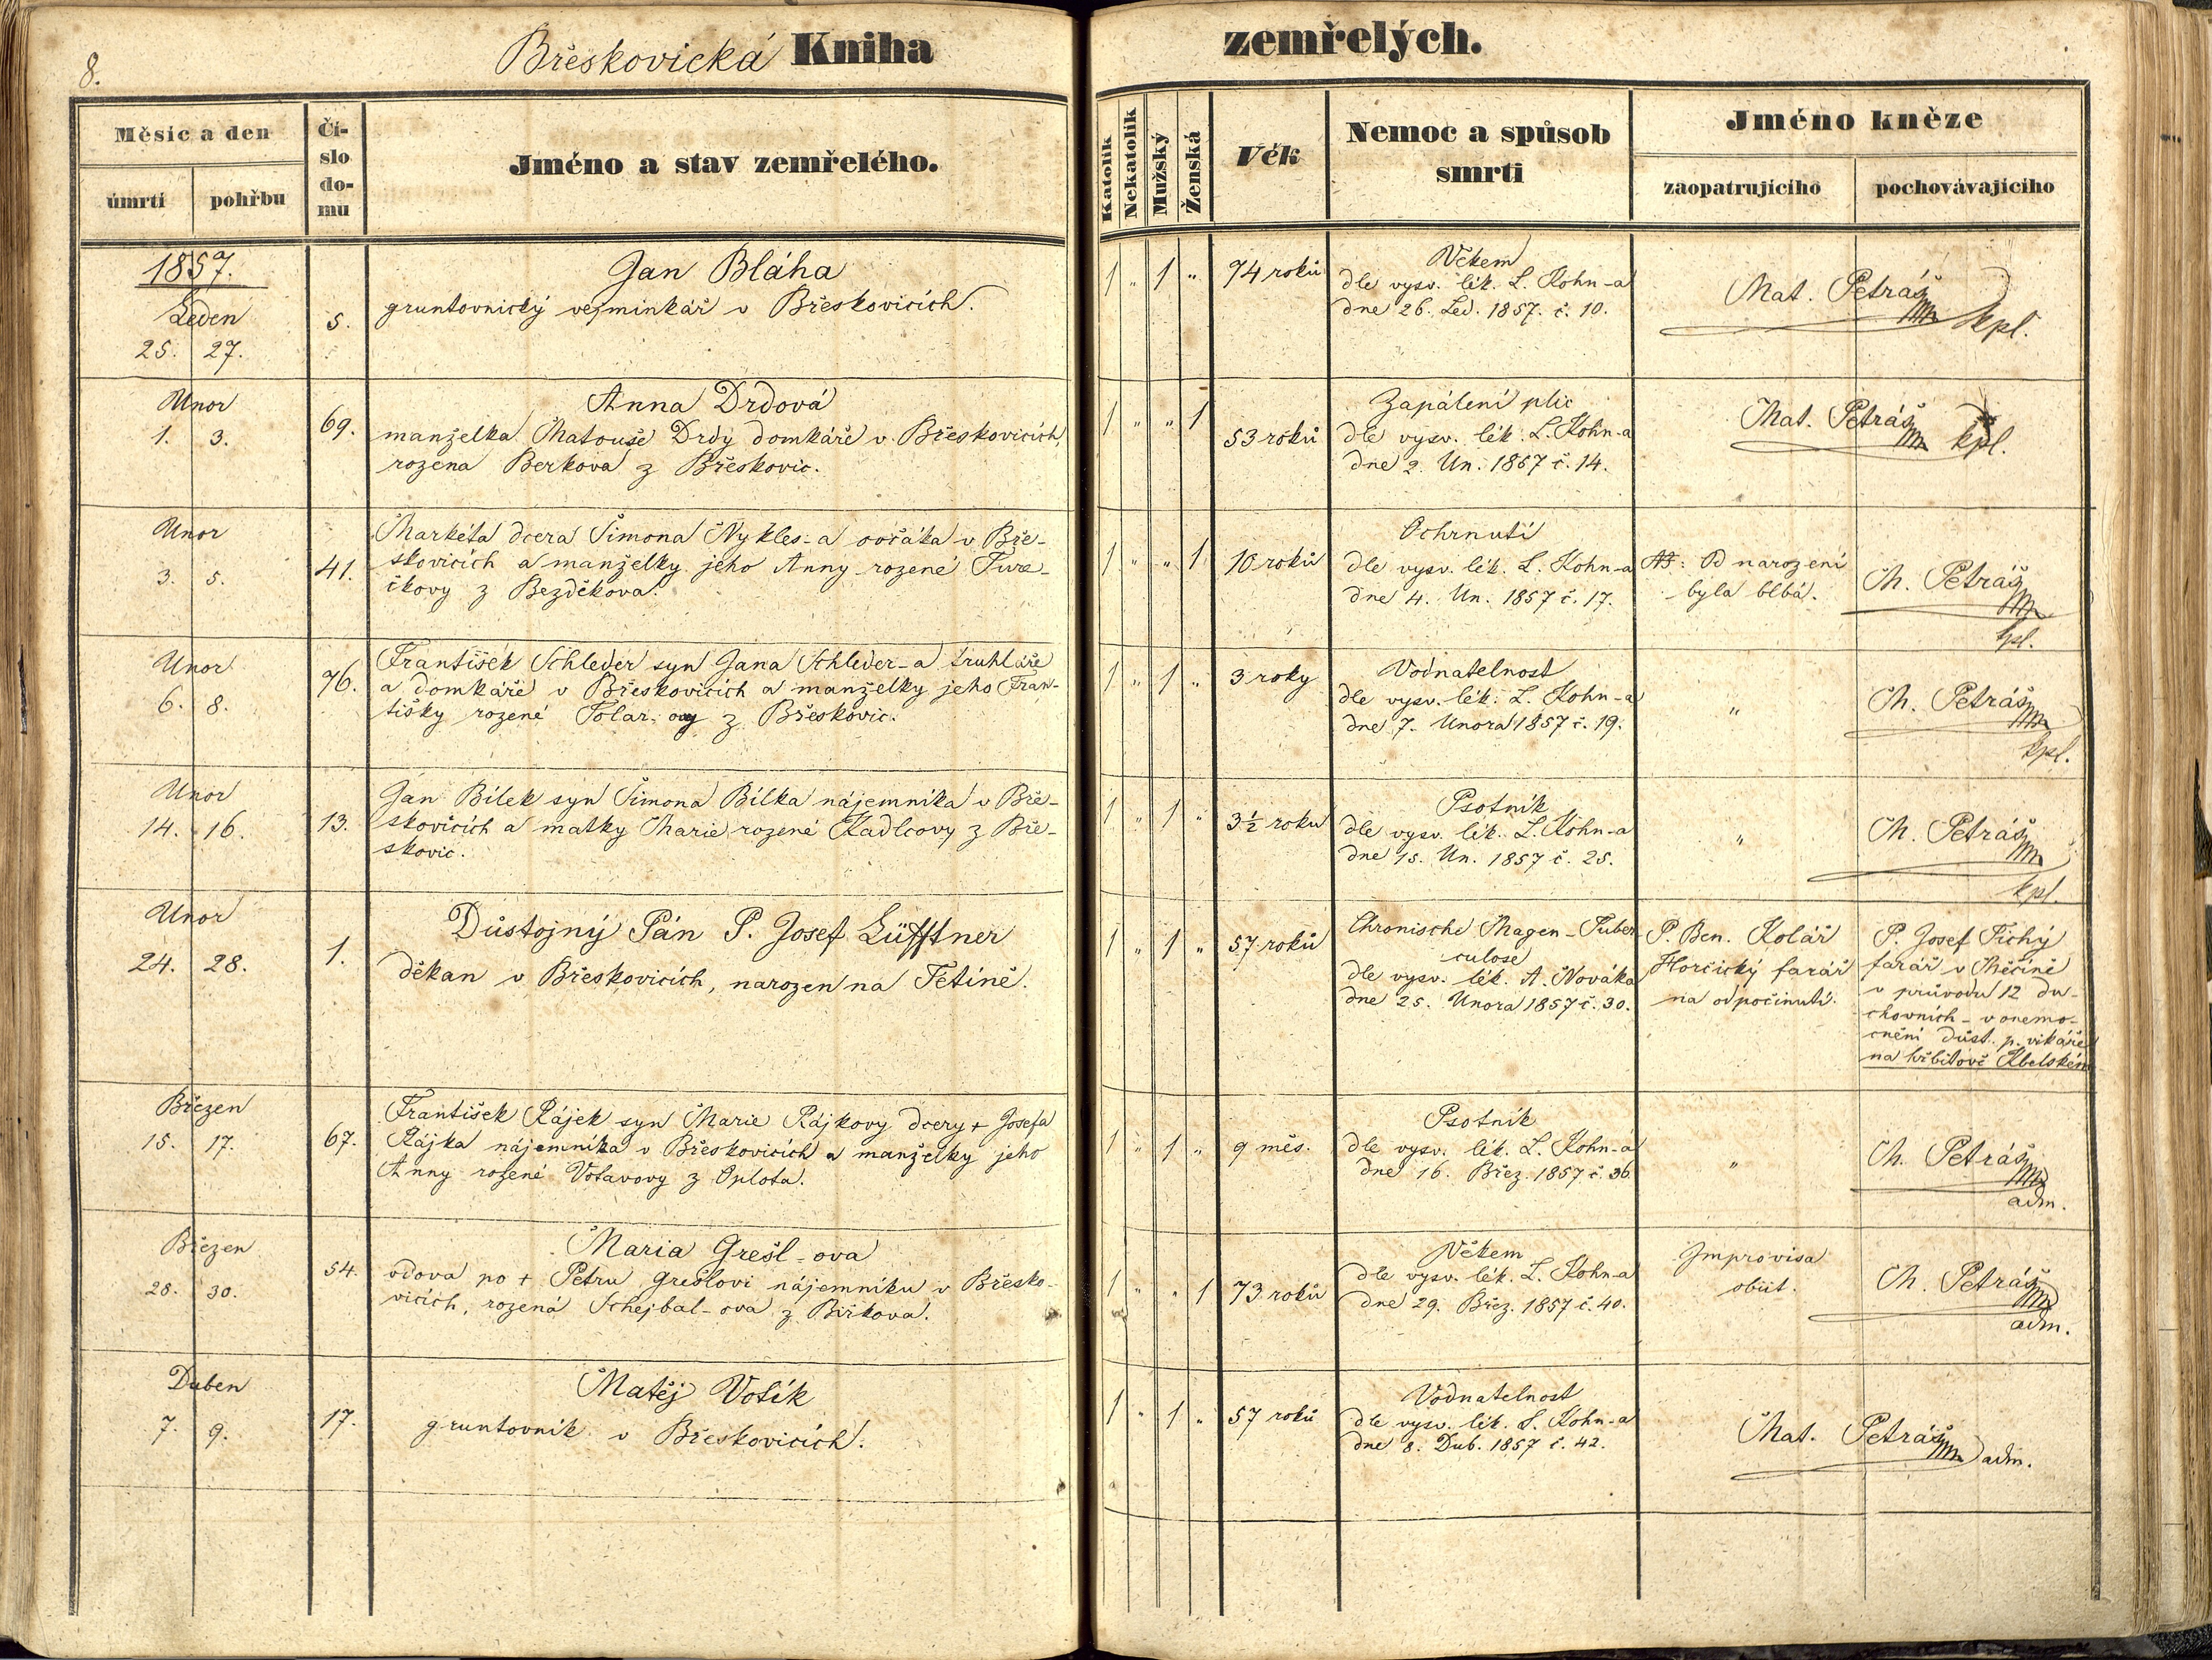 8.
Břeskovická Kniha zemřelých.
Měsíc a den
úmrtí
pohřbu
Čí-
slo
do-
mu
Jméno a stav zemřelého.
Katolík
Nekatolík
Mužský
Ženská
Věk
Nemoc a spůsob
smrti
Jméno kněze
zaopatrujícího
pochovávajícího
1857.
Leden
25. 27.
5.
Jan Bláha
gruntovnický vejminkář v Břeskovicích.
1 " 1 "
74 roků
Věkem
dle vysv. lék. L. Kohn-a
dne 26. Led. 1857. č. 10.
Mat. Petráš
kpl.
Unor
1. 3.
69.
Anna Drdová
manželka Matouše Drdy domkáře v Břeskovicích,
rozena Berkova z Břeskovic.
1 " " 1
53 roků
Zapálení plic
dle vysv. lék. L. Kohn-a
dne 2. Un. 1857 č. 14.
Mat. Petráš
kpl.
Unor
3. 5.
41.
Markéta dcera Šimona Nykles-a ovčáka v Bře-
skovicích a manželky jeho Anny rozené Ture-
čkovy z Bezděkova.
1 " " 1
10 roků
Ochrnutí
dle vysv. lék. L. Kohn-a
dne 4. Un. 1857 č. 17.
NB: Od narození
byla blbá.
M. Petráš
kpl.
Unor
6. 8.
76.
František Schleder syn Jana Schleder-a truhláře
a domkáře v Břeskovicích a manželky jeho Fran-
tišky rozené Tolar-ovy z Břeskovic.
1 " 1 "
3 roky
Vodnatelnost
dle vysv. lék. L. Kohn-a
dne 7. Unora 1857 č. 19.
"
M. Petráš
kpl.
Unor
14. 16.
13.
Jan Bílek syn Šimona Bílka nájemníka v Bře-
skovicích a matky Marie rozené Kadlcovy z Bře-
skovic.
1 " 1 "
3 1/2 roku
Psotník
dle vysv. lék. L. Kohn-a
dne 15. Un. 1857 č. 25.
"
M. Petráš
kpl.
Unor
24. 28.
1.
Důstojný Pán P. Josef Lüfftner
děkan v Břeskovicích, narozen na Tetíně.
1 " 1 "
57 roků
Chronische Magen-Tuber
culose
dle vysv. lék. A. Nováka
dne 25. Unora 1857 č. 30.
P. Ben. Kolář
Horčický farář
na odpočinutí.
P. Josef Tichý
farář v Měčíně
v průvodu 12 du-
chovních - v onemo-
cnění důst. p. vikáře
na hřbitově Kbelském
Březen
15. 17.
67.
František Rájek syn Marie Rájkovy dcery + Josefa
Rájka nájemníka v Břeskovicích a manželky jeho
Anny rozené Votavovy z Oplota.
1 " 1 "
9 měs.
Psotník
dle vysv. lék. L. Kohn-a
dne 16. Břez. 1857 č. 36.
"
M. Petráš
adm.
Březen
28. 30.
54.
Maria Grešl-ova
vdova po + Petru Grešlovi nájemníku v Břesko-
vicích, rozená Schejbal-ova z Birkova.
1 " " 1
73 roků
Věkem
dle vysv. lék. L. Kohn-a
dne 29. Břez. 1857 č. 40.
Improvisa
obiit.
M. Petráš
adm.
Duben
7. 9.
17.
Matěj Votík
gruntovník v Břeskovicích.
1 " 1 "
57 roků
Vodnatelnost
dle vysv. lék. L. Kohn-a
dne 8. Dub. 1857 č. 42.
Mat. Petráš
adm.